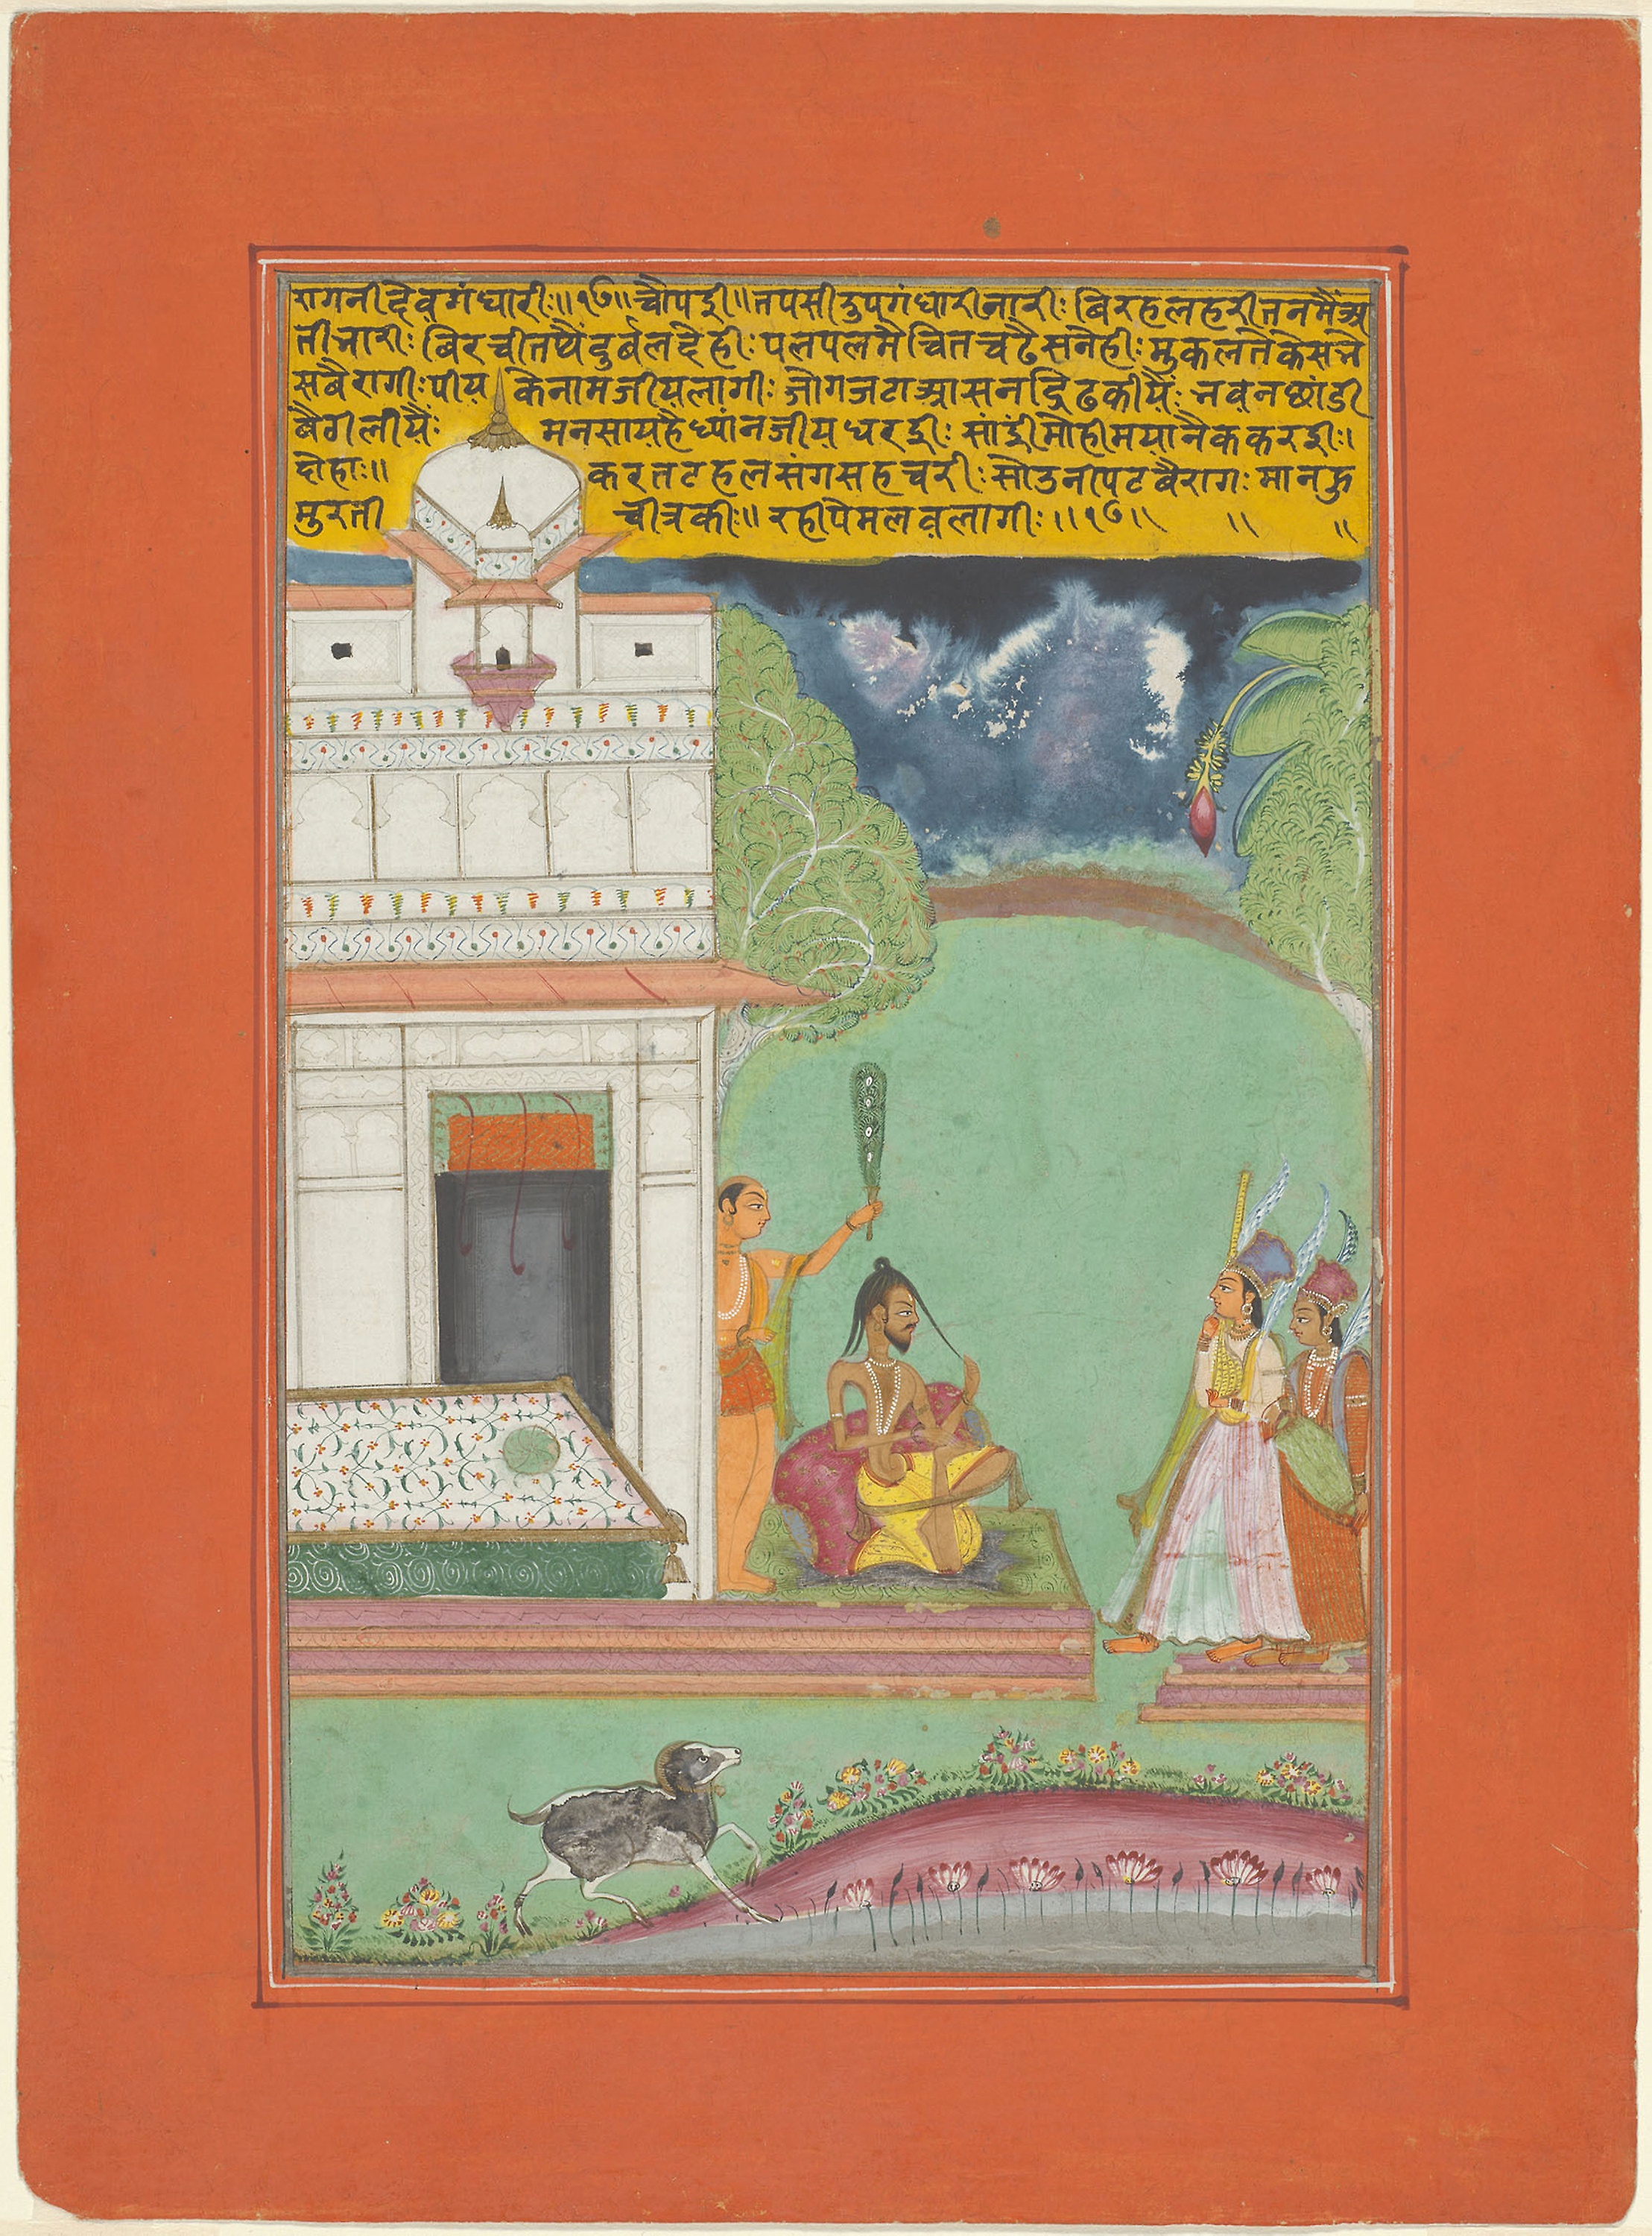 रागनी देवगंधारीः॥१७॥ चौपई॥ तपसी रुप गंधारी नारीः बिरह लहरी तन मैं अ
ती भारीः बिरची तप्पै दुर्बल देहीः पल पल मै चित चढै सनेहीः मुकलते केस
सबै रागीः पीय के नाम जीय लागीः जोग जटा आसन द्रिढ कीयैः
बैगी लीयैंः मनसा यहै ध्यांन जीय धरईः
दोहाः॥ करत टहल संग सहचरीः सोउ नीपट बैरागः मानहु
मुरती चीत्र कीः॥ रही पेम लव लागीः॥१७॥ ॥ ॥